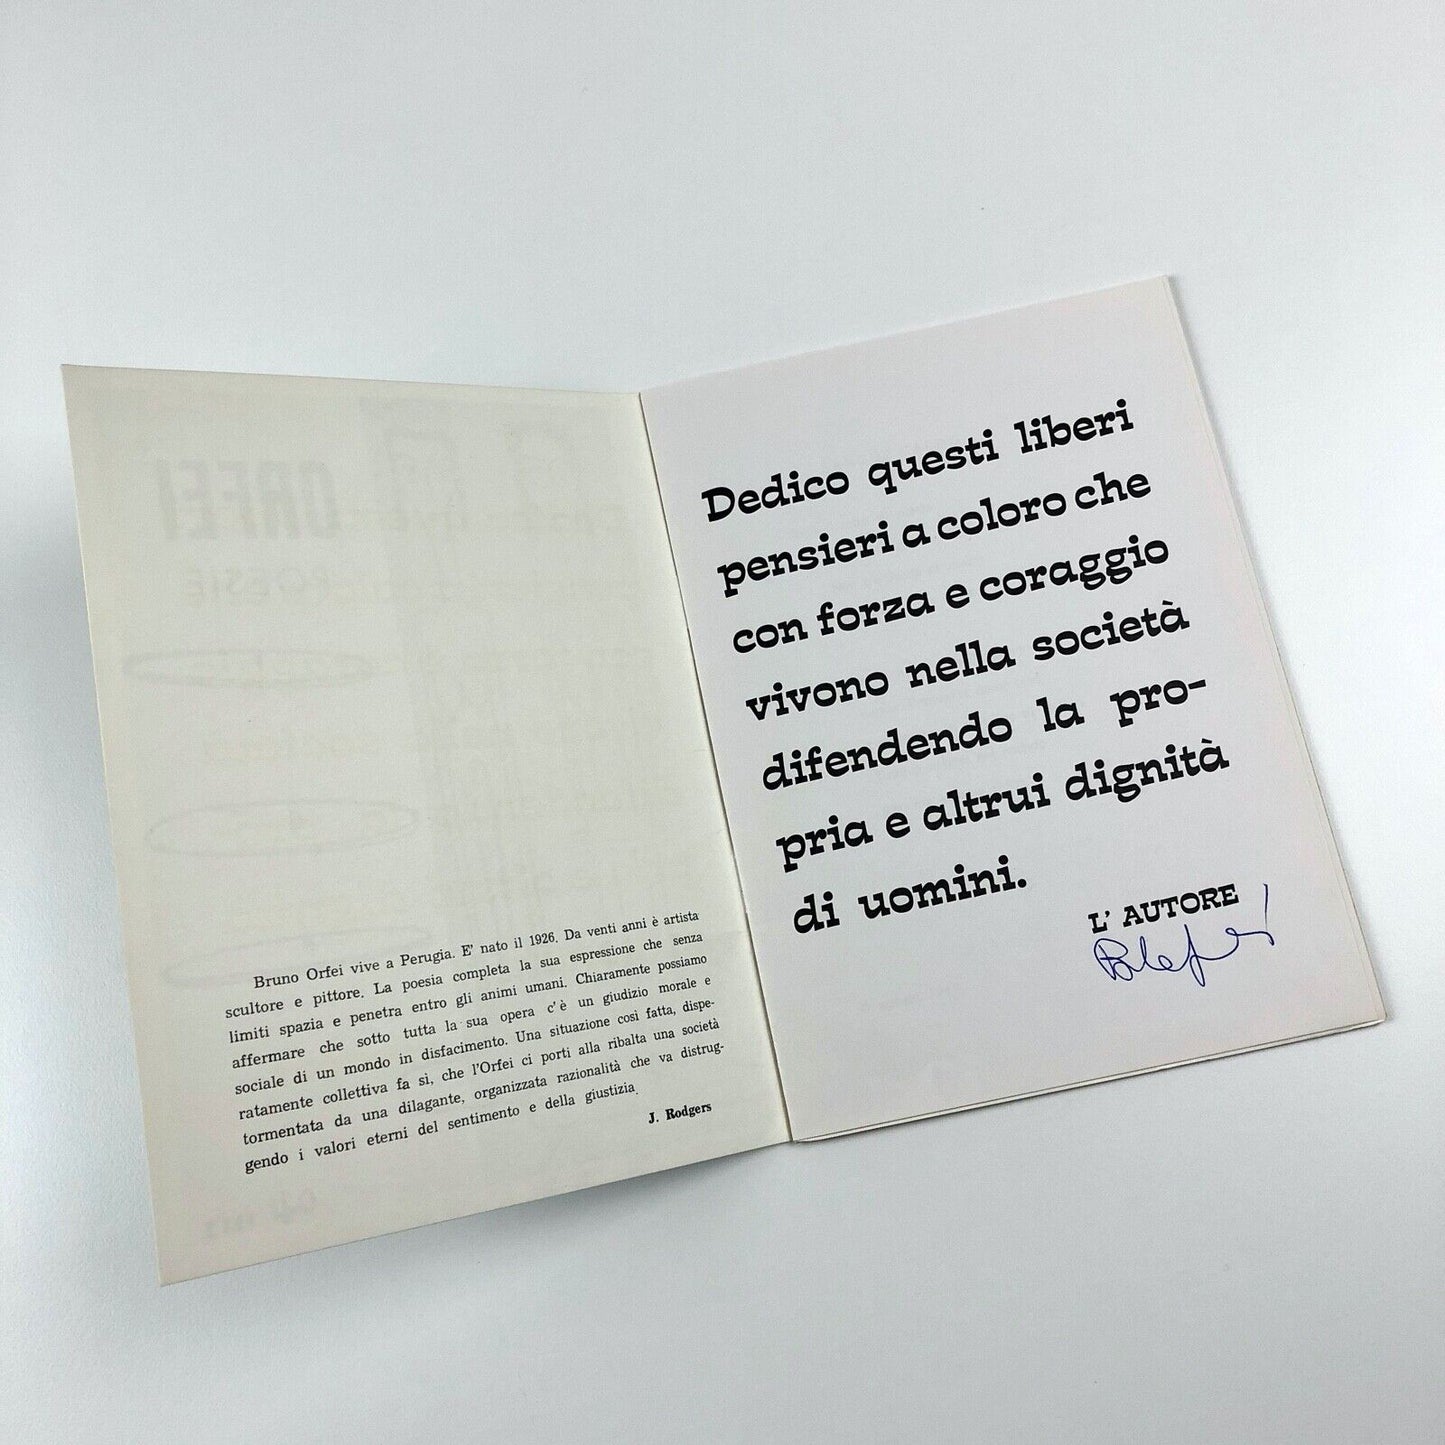 ORFEI
POESIE
Bruno Orfei vive a Perugia. E' nato il 1926. Da venti anni è artista
scultore e pittore. La poesia completa la sua espressione che senza
limiti spazia e penetra entro gli animi umani. Chiaramente possiamo
affermare che sotto tutta la sua opera c'è un giudizio morale e
sociale di un mondo in disfacimento. Una situazione così fatta, dispe-
ratamente collettiva fa sì, che l'Orfei ci porti alla ribalta una società
tormentata da una dilagante, organizzata razionalità che va distrug-
gendo i valori eterni del sentimento e della giustizia.
J. Rodgers
Dedico questi liberi
pensieri a coloro che
con forza e coraggio
vivono nella società
difendendo la pro-
pria e altrui dignità
di uomini.
L' AUTORE